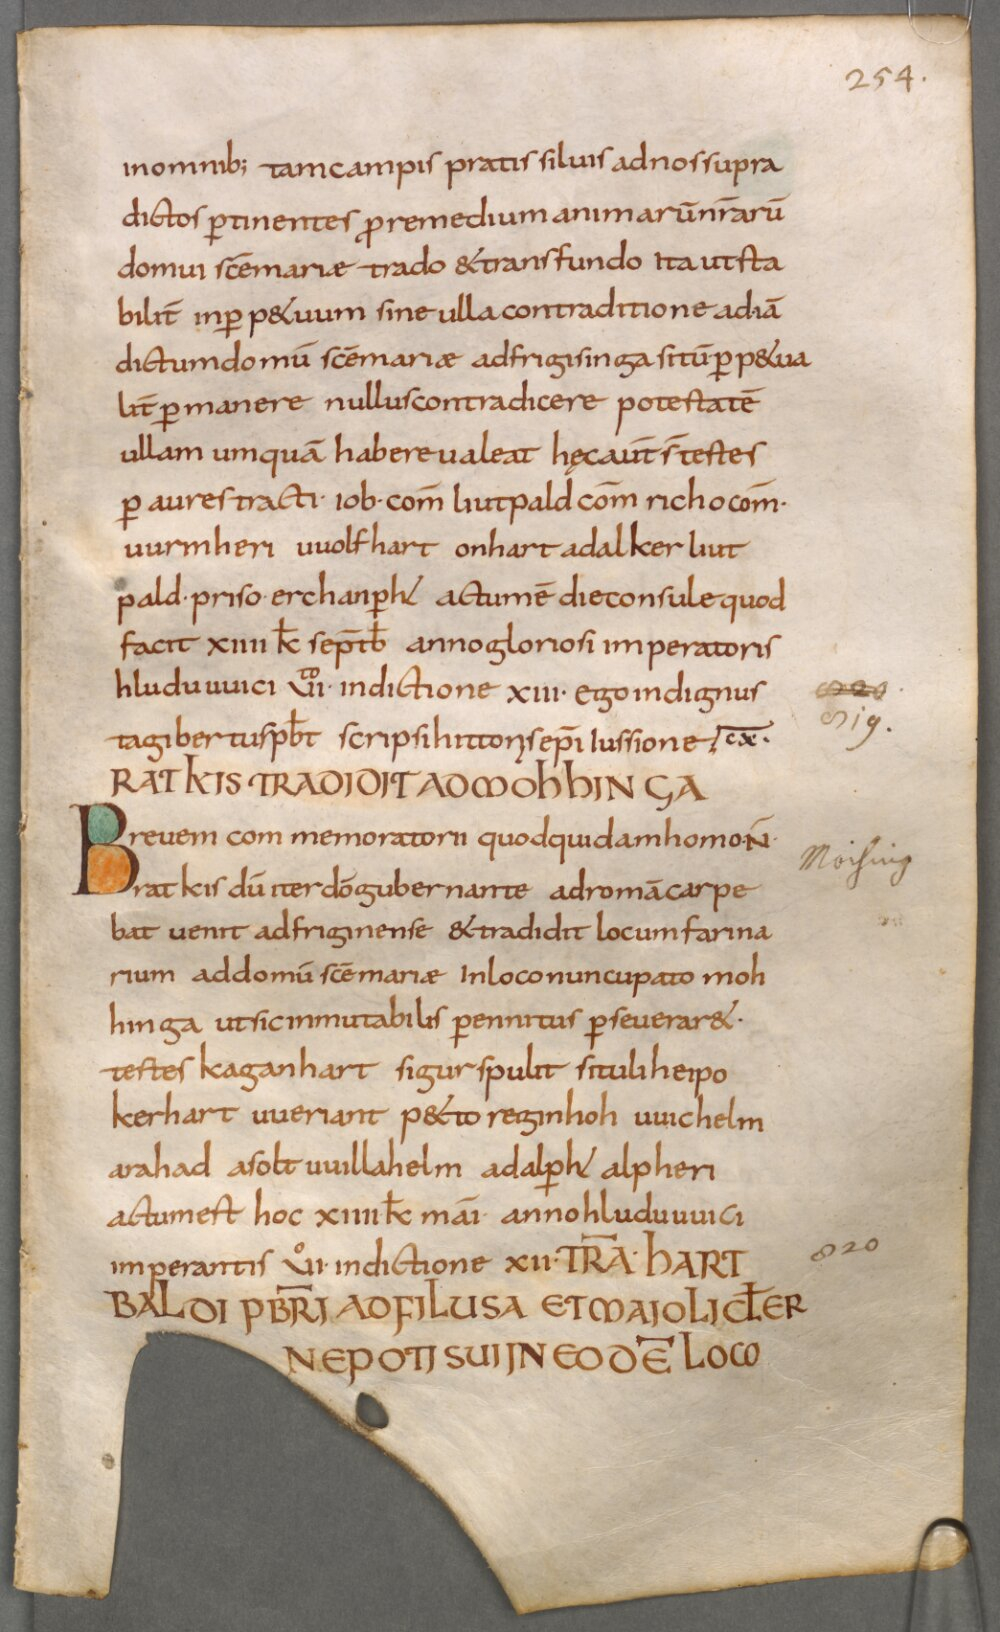 254.
inomnib; tamcampis pratis siluis adnossupra
dictos ꝑtinentes ꝓremedium animarūnr̄arū
domui scēmariæ trado &transfundo ita utsta
bilit̄ inꝑp&uum sine ulla contraditione ad iā
dictumdomū scēmariæ adfrigisinga sitūꝑp&ua
lit̄ ꝑmanere nulluscontradicere potestatē
ullam umquā habere ualeat hęcaut̄ s̄ testes
ꝑ aurestracti· iob· com̄ liutpald com̄ richo com̄·
uurmheri uuolfhart onhart adalker liut
pald· priso· erchanꝑh& actumē dieconsule quod
facit xiiii k̄ sep̄tb̄ annogloriosi imperatoris
hludu uuici ūii· indictione xiii· ego indignus
820.
819.
tagibertusp̄bt scripsi hittonꝫ sep̄i iussione cx·
RATKIS TRADIDIT AD MOHHINGA
Brevem com memoratorii quodquidamhomo·N̄·
Moching
ratkis dū iter dō gubernante adromā carpe
bat uenit adfriginense &tradidit locumfarina
rium addomū scēmariæ Inloconuncupato moh
hinga utsicinmutabilis ꝑennitus ꝑseuerar&·
testes kaganhart sigur spulit situli heipo
kerhart uueriant p&to reginhoh uuichelm
arahad asolt uuillahelm adalꝑh& alpheri
actumest hoc xiiii k̄ māi· anno hluduuuici
imperantis ūii· indictione xii· TR̄A· HART
820
BALDI PB̄RI AD FILUSA ET MAIOLI CL̄ER
NEPOTI SUI IN EODĒ LOCO